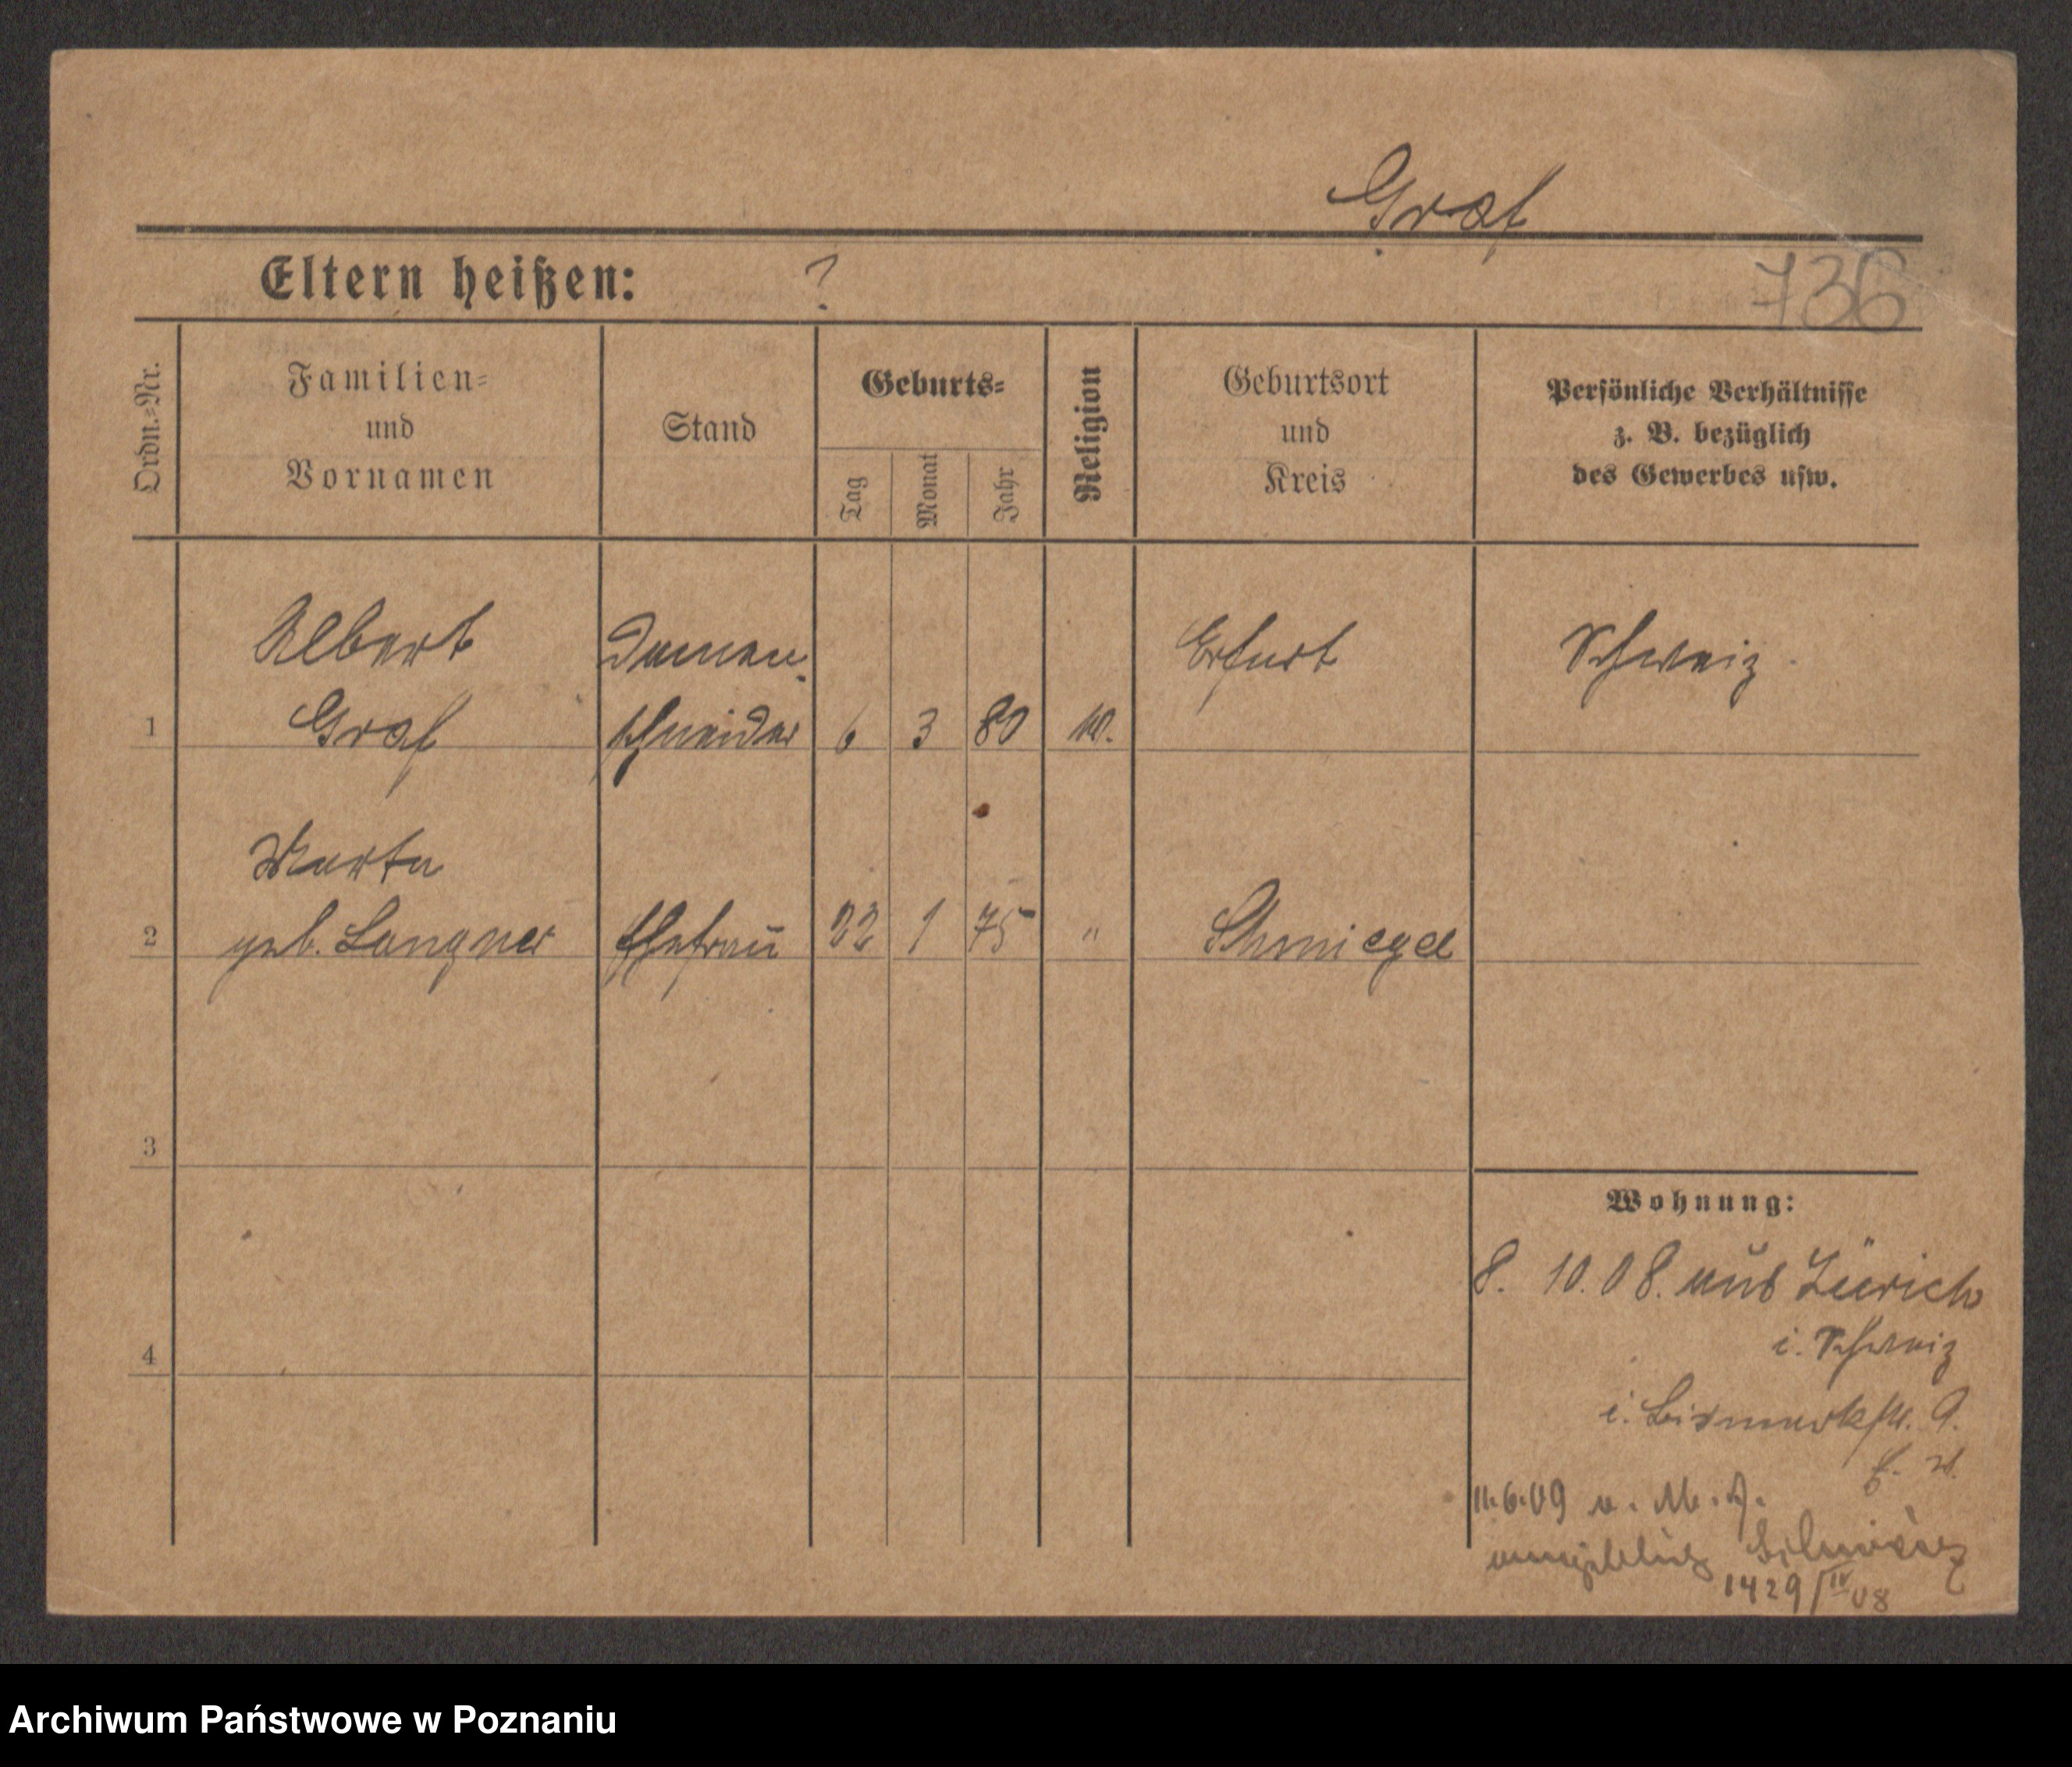 Graf
Eltern heißen: ?
736
Ordn.-Nr.
Familien-
und
Vornamen
Stand
Geburts-
Tag
Monat
Jahr
Religion
Geburtsort
und
Kreis
Persönliche Verhältnisse
z. B. bezüglich
des Gewerbes usw.
Albert Damen- Erfurt Schweiz
1 Graf schneider 6 3 80
Marta
2 geb. Langner Ehefrau 22 1 75 " Schmiegel
3
Wohnung:
8. 10. 08. aus Zürich
i. Schweiz
4
i. Bismarkstr. 9.
11.6.09 v. M. A.
1429/IV 08
Archiwum Państwowe w Poznaniu